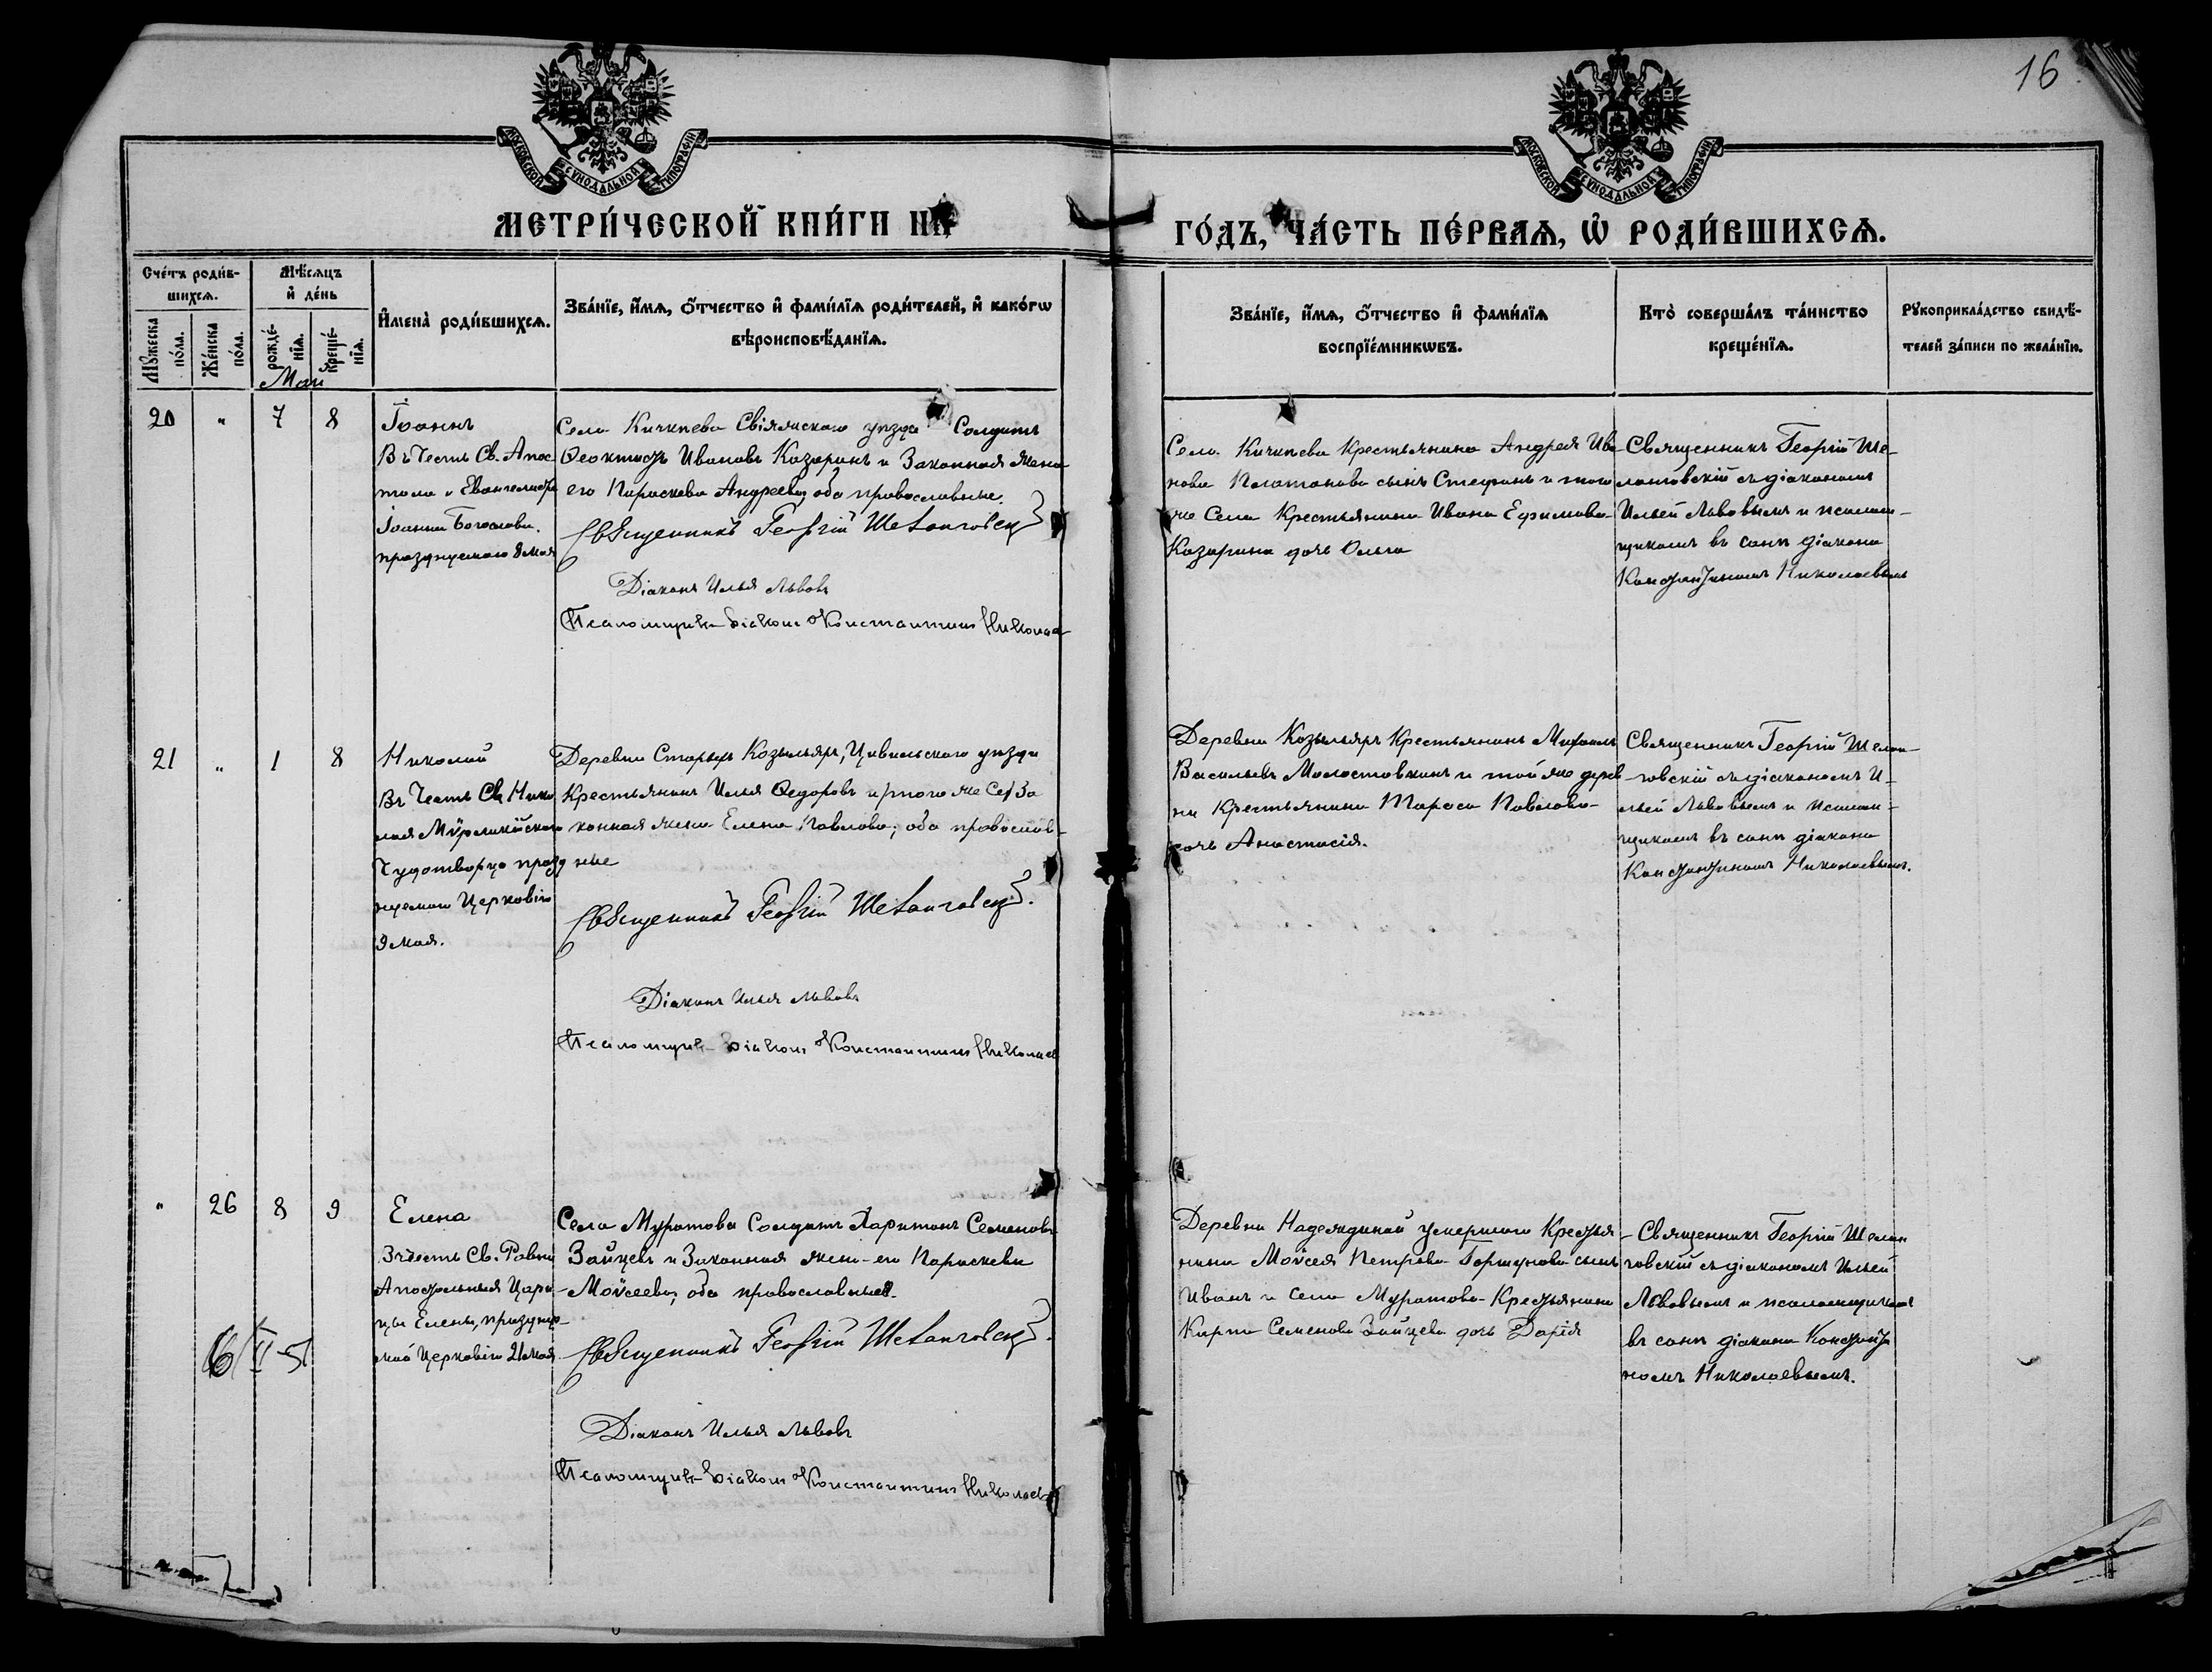 16
МОСКОВСКОЙ СѴНОДАЛЬНОЙ ТИПОГРАФІИ
МОСКОВСКОЙ СѴНОДАЛЬНОЙ ТИПОГРАФІИ
МЕТРИ́ЧЕСКОЙ КНИ́ГИ НА
ГО́ДЪ, ЧА́СТЬ ПЕ́РВАѦ, Ѡ҆ РОДИ́ВШИХСѦ.
Сче́тъ роди́в-
шихсѧ.
Мѣ́сѧцъ
и҆ де́нь
Мꙋ́жеска
по́ла.
Же́нска
по́ла.
рожде́-
нїѧ.
креще́-
нїѧ.
И҆мена̀ роди́вшихсѧ.
Зва́нїе, и҆́мѧ, ѻ҆́тчество и҆ фами́лїѧ роди́телей, и҆ како́гѡ
вѣроисповѣ́данїѧ.
Зва́нїе, и҆́мѧ, ѻ҆́тчество и҆ фами́лїѧ
воспрїе́мникѡвъ.
Кто̀ соверша́лъ та́инство
креще́нїѧ.
Рꙋкоприкла́дство свидѣ́-
телей за́писи по жела́нїю.
Маи
20 " 7 8
Іоаннъ
Въ Честь Св. Апос-
тола и Евангелиста
Іоанна Богослова,
празднуемаго 8 мая
Села Кичкѣева Свіяжскаго уѣзда Солдатъ
Ѳеоктистъ Ивановъ Казаринъ и Законная жена
его Параскева Андреева; оба православные.
Священникъ Георгій Шелонговскій
Діаконъ Илья Львовъ
Псаломщикъ-діаконъ Константинъ Николаев
Села Кичкѣева Крестьянина Андрея Ива
нова Платонова сынъ Стефанъ и того
же Села Крестьянина Ивана Ефимова
Казарина дочь Ольга
Священникъ Георгій Ше-
лонговскій съ діакономъ
Ильей Львовымъ и псалом-
щикомъ въ санѣ діакона
Константиномъ Николаевымъ
21 " 1 8
Николай
Въ Честь Св. Нико
лая Мѵрликійскаго
Чудотворца празд
нуемаго Церковію
9 мая.
Деревни Старыхъ Козыльяръ, Цивильскаго уѣзда
Крестьянинъ Илья Ѳедоровъ и За
конная жена Елена Павлова; оба православ-
ные
Священникъ Георгій Шелонговскій.
Діаконъ Илья Львовъ
Псаломщикъ-діаконъ Константинъ Николаев
Деревни Козыльяръ Крестьянинъ Михаилъ
Васильевъ Молостовкинъ и той же дерев
ни Крестьянина Тараса Павлова
дочь Анастасія.
Священникъ Георгій Шелон-
говскій съ діакономъ И-
льей Львовымъ и псалом-
щикомъ въ санѣ діакона
Константиномъ Николаевымъ.
" 26 8 9
Елена
Въ честь Св. Равно
Апостольныя Цари-
цы Елены, праздну-
мой Церковію 21 мая
Села Муратова Солдатъ Харитонъ Семеновъ
Зайцевъ и Законная жена его Параскева
Моѵсеева; оба православные.
Священникъ Георгій Шелонговскій.
Діаконъ Илья Львовъ
Псаломщикъ-діаконъ Константинъ Николаев
Деревни Надеждиной умершаго Крестья
нина Моѵсея Петрова Горшунова сынъ
Иванъ и Села Муратова Крестьянина
Карпа Семенова Зайцева дочь Дарія
Священникъ Георгій Шелон
говскій съ діакономъ Ильей
Львовымъ и псаломщикомъ
въ санѣ діакона Константи
номъ Николаевымъ.